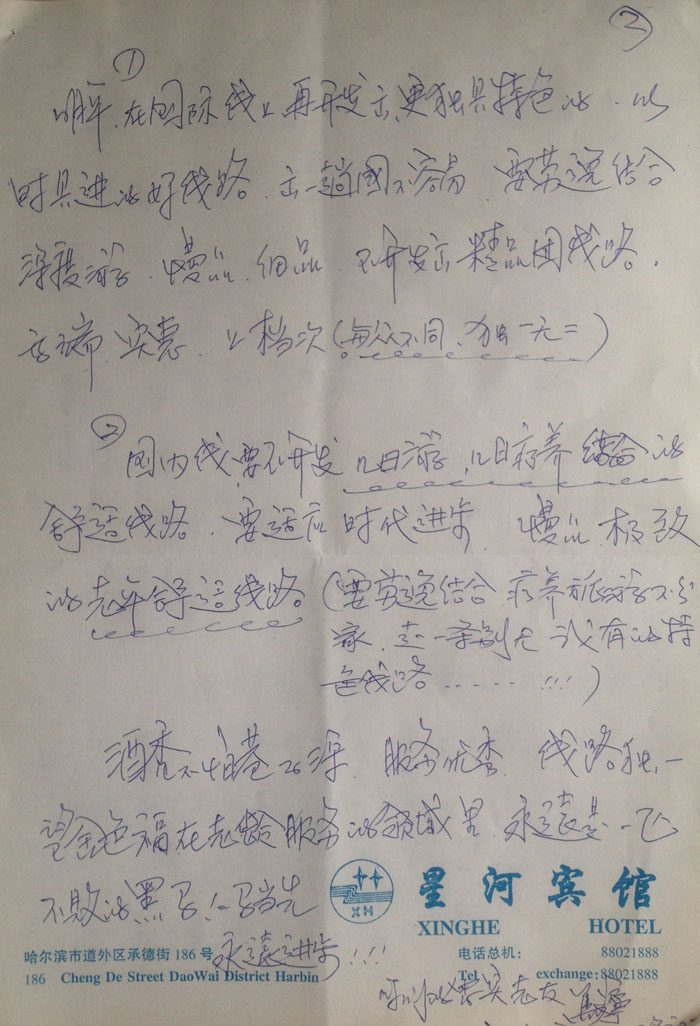 ③
①
明年、在国际线上再开发出更独具特色的、以
时具进的好线路。出一趟國不容易 要劳逸结合
深度游、慢品、细品、开发出精品团线路、
高端、实惠、上档次(与众不同、独一无二)
②
国内线要开发几日游,几日疗养结合的
舒适线路。要适应时代进步 慢品 极致
的老年舒适线路。(要劳逸结合 疗养旅游不分
家、走一条别人没有的特
色线路……!!!)
酒香不怕巷子深、服务优秀、线路独一
望金色福在老龄服务的领域里、永远是一匹
不败的黑马!一马当先
永远进步!!!
星河宾馆
XINGHE HOTEL
XH
哈尔滨市道外区承德街186号 电话总机: 88021888
186 Cheng De Street DaoWai District Harbin Tel exchange:88021888
老友